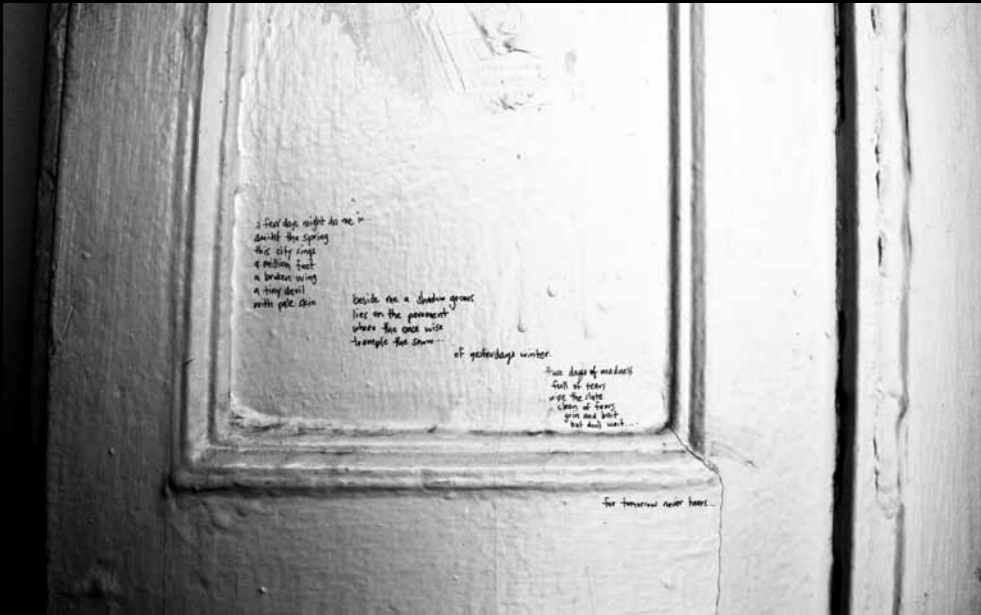 a few days might do me in...
amidst the spring
this city sings
a million feet
a broken wing
a tiny devil
with pale skin
beside me a shadow grows
lies on the pavement
where the once wise
trample the snow...
of yesterdays winter.
days of madness
full of tears
wipe the slate
clean of fears
grin and bait
but don't wait....
for tomorrow never hears...